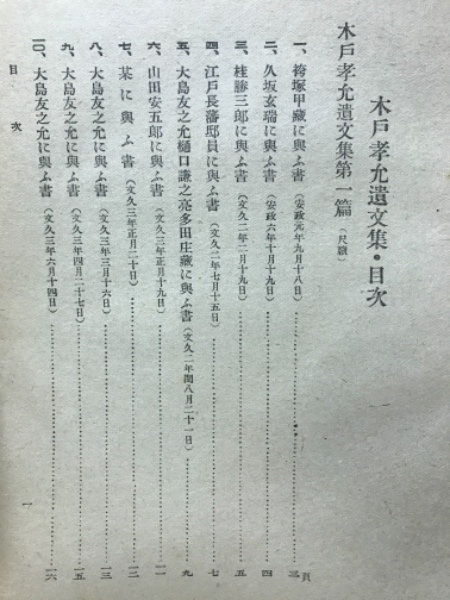 木戸孝允遺文集・目次
木戸孝允遺文集第一篇(尺牘)
一、袴塚甲藏に與ふ書(安政元年九月十八日)…三頁
二、久坂玄瑞に與ふ書(安政六年十月十九日)…四
三、桂勝三郎に與ふ書(文久二年二月十九日)…五
四、江戸長藩邸員に與ふ書(文久二年七月十五日)…七
五、大島友之允樋口謙之亮多田庄藏に與ふ書(文久二年閏八月二十一日)…九
六、山田安五郎に與ふ書(文久三年正月十九日)…一一
七、某に與ふ書(文久三年正月二十日)…一二
八、大島友之允に與ふ書(文久三年三月十六日)…一三
九、大島友之允に與ふ書(文久三年四月二十七日)…一五
一〇、大島友之允に與ふ書(文久三年六月十四日)…一六
目次
一